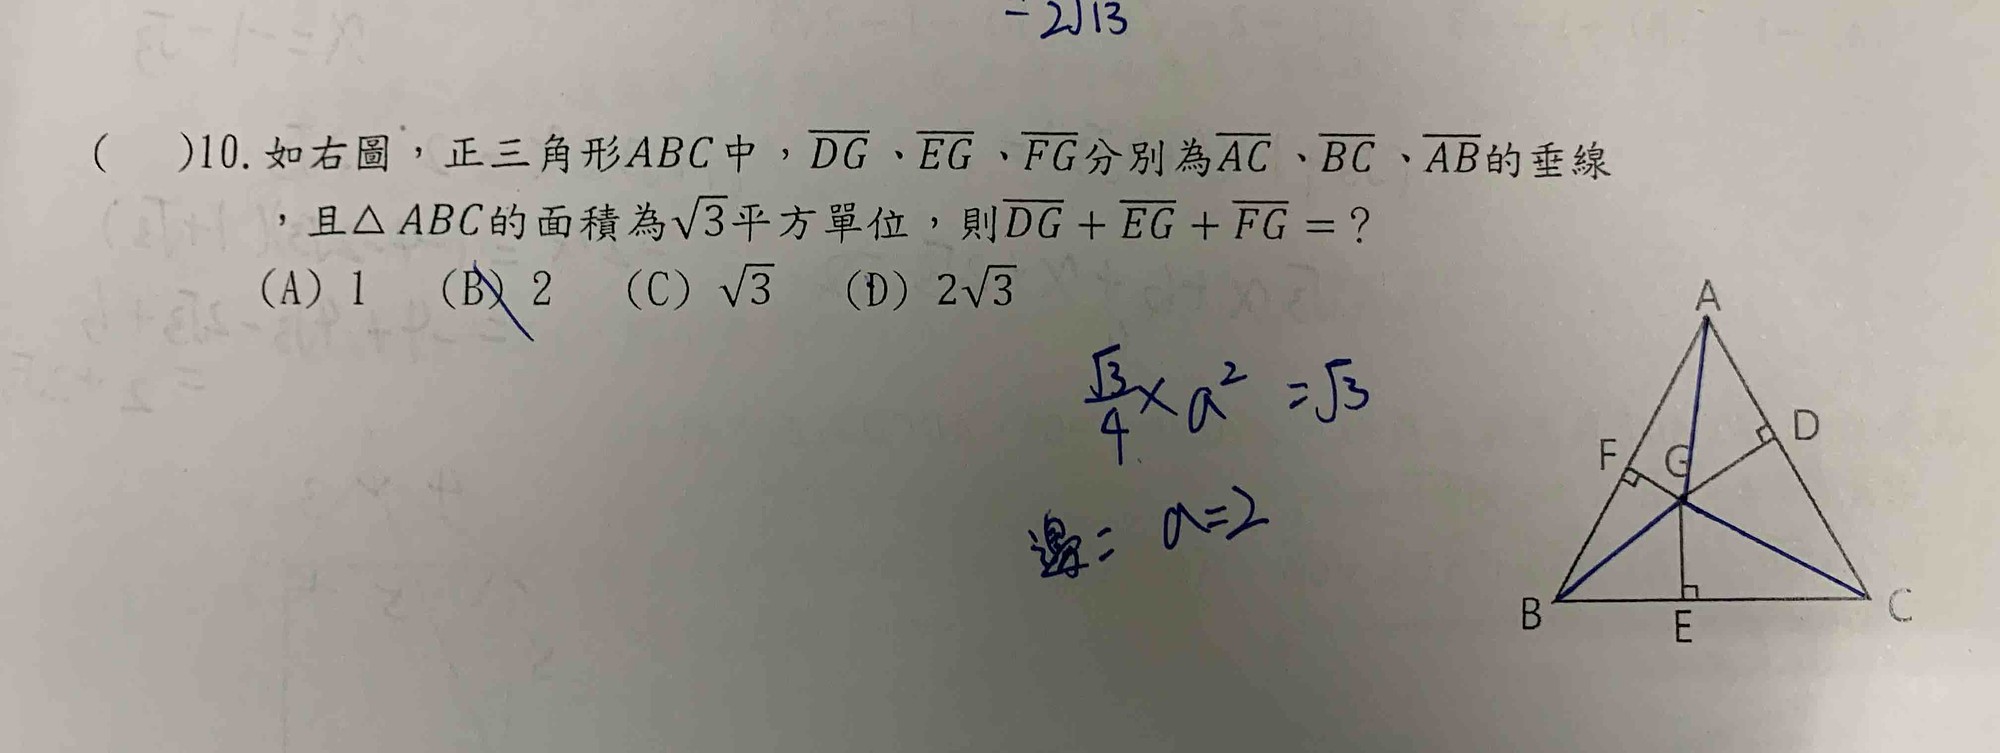 -2√13
( )10. 如右圖，正三角形ABC中，DG、EG、FG分別為AC、BC、AB的垂線
，且△ABC的面積為√3平方單位，則DG + EG + FG = ?
(A) 1 (B) 2 (C) √3 (D) 2√3
√3/4 × a² = √3
邊= a=2
A
F G D
B E C